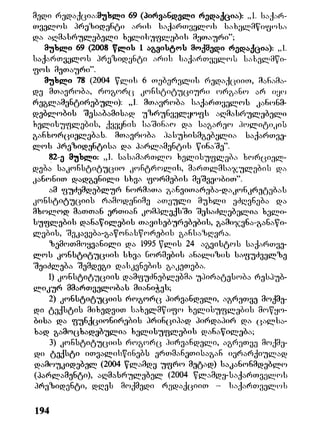 მედი რედაქცია:მუხლი 69 (პირვანდელი რედაქცია): „1. საქარ-
თველოს პრეზიდენტი არის საქართველოს სახელმწიფოსა
და აღმასრულებელი ხელისუფლების მეთაური“;
მუხლი 69 (2008 წლის 1 აგვისტოს მოქმედი რედაქცია): „1.
საქართველოს პრეზიდენტი არის საქართველოს სახელმწი-
ფოს მეთაური“.
მუხლი 78 (2004 წლის 6 თებერვლის რედაქციით, მანამა-
დე მთავრობა, როგორც კონსტიტუციური ორგანო არ იყო
რეგლამენტირებული): „1. მთავრობა საქართველოს კანონმ-
დებლობის შესაბამისად უზრუნველყოფს აღმასრულებელი
ხელისუფლების, ქვეყნის საშინაო და საგარეო პოლიტიკის
განხორციელებას. მთავრობა პასუხისმგებელია საქართვე-
ლოს პრეზიდენტისა და პარლამენტის წინაშე“.
82-ე მუხლი: „1. სასამართლო ხელისუფლება ხორციელ-
დება საკონსტიტუციო კონტროლის, მართლმსაჯულების და
კანონით დადგენილი სხვა ფორმების მეშვეობით“.
ამ ფუძემდებლურ ნორმათა განვითარება-დაკონკრეტებას
კონსტიტუციის რამოდენიმე ათეული მუხლი ეძღვნება და
მხოლოდ მათთან ერთიან კომპლექსში შესაძლებელია ხელი-
სუფლების დანაწილების თავისებურებების, გამიჯვნა-განაწი-
ლების, შეკავება-გაწონასწორების განსაზღვრა.
ზემოთმოყვანილი და 1995 წლის 24 აგვისტოს საქართვე-
ლოს კონსტიტუციის სხვა ნორმების ანალიზის საფუძველზე
შეიძლება შემდეგი დასკვნების გაკეთება.
1) კონსტიტუციის დამფუძნებლებმა უპირატესობა რესპუბ-
ლიკურ მმართველობას მიანიჭეს;
2) კონსტიტუციის როგორც პირვანდელი, აგრეთვე მოქმე-
დი ტექსტის მიხედვით სახელმწიფო ხელისუფლების მოწყო-
ბისა და ფუნქციონირების პრინციპად პირდაპირ და ცალსა-
ხად გამოცხადებულია ხელისუფლების დანაწილება;
3) კონსტიტუციის როგორც პირვანდელი, აგრეთვე მოქმე-
დი ტექსტი ითვალისწინებს ერთმანეთისაგან იერარქიულად
დამოუკიდებელ (2004 წლამდე უფრო მეტად) საკანონმდებლო
(პარლამენტი), აღმასრულებელ (2004 წლამდე-საქართველოს
პრეზიდენტი, დღეს მოქმედი რედაქციით – საქართველოს
194